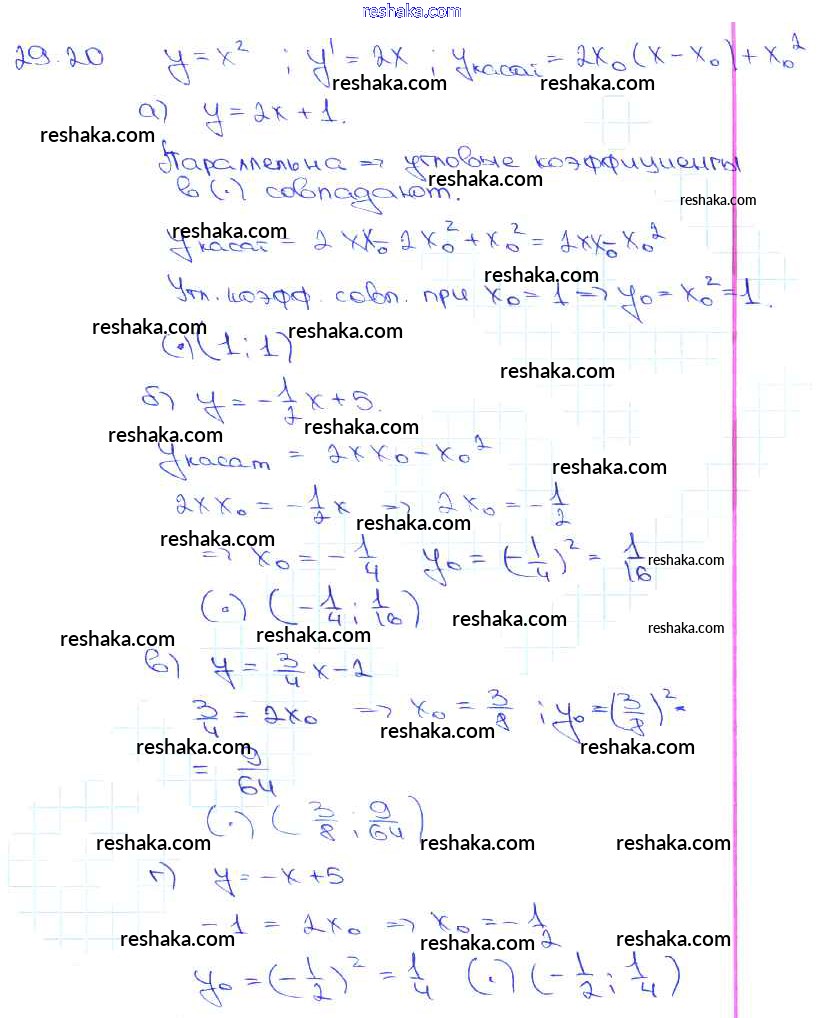 reshaka.com
29.20 y = x² ; y' = 2x ; yкасат = 2x₀(x-x₀)+x₀²
reshaka.com reshaka.com
а) y = 2x+1.
reshaka.com reshaka.com
Параллельна => угловые коэффициенты
reshaka.com
в (·) совпадают.
reshaka.com
reshaka.com
yкасат = 2xx₀-2x₀²+x₀² = 2xx₀-x₀²
reshaka.com
Угл. коэфф. совп. при x₀=1 => y₀=x₀²=1.
reshaka.com reshaka.com
(·)(1;1)
reshaka.com
б) y = -1/2x+5.
reshaka.com reshaka.com
yкасат = 2xx₀-x₀²
reshaka.com
2xx₀ = -1/2x => 2x₀ = -1/2
reshaka.com
reshaka.com
=> x₀ = -1/4 y₀ = (-1/4)² = 1/16
reshaka.com
(·) (-1/4; 1/16)
reshaka.com
reshaka.com reshaka.com reshaka.com
в) y = 3/4x-2
3/4 = 2x₀ => x₀ = 3/8 ; y₀ = (3/8)² =
reshaka.com
reshaka.com reshaka.com
= 9/64
(·) (3/8; 9/64)
reshaka.com reshaka.com reshaka.com
г) y = -x+5
-1 = 2x₀ => x₀ = -1/2
reshaka.com reshaka.com reshaka.com
y₀ = (-1/2)² = 1/4 (·) (-1/2; 1/4)